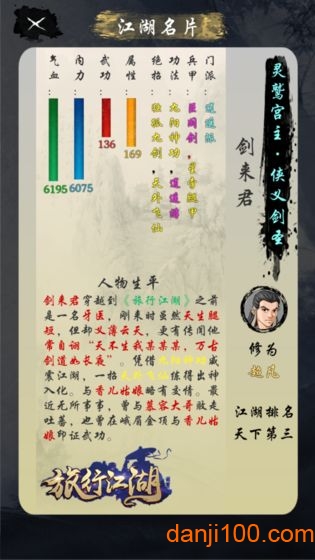 江湖名片
灵鹫宫主·侠义剑圣
剑来君
门派:逍遥派
兵甲:巨阙剑,
功法:九阳神功,逍遥游
绝招:独孤九剑,天外飞仙
属性:
169
武功:
136
内力:
6075
气血:
6195
人物生平
剑来君穿越到《旅行江湖》之前
是一名牙医,刚来时虽然天生腿
短,但却义薄云天,更有传闻他
常自诩"天不生我某某某,万古
剑道如长夜"。凭借九阳神功威
震江湖,一招天外飞仙练得出神
入化。与香儿姑娘略有交情。最
近无所事事,曾与慕容大哥败走
吐蕃,也曾在峨眉金顶与香儿姑
娘印证武功。
修为
超凡
江湖排名
天下第三
旅行江湖
danji100.com